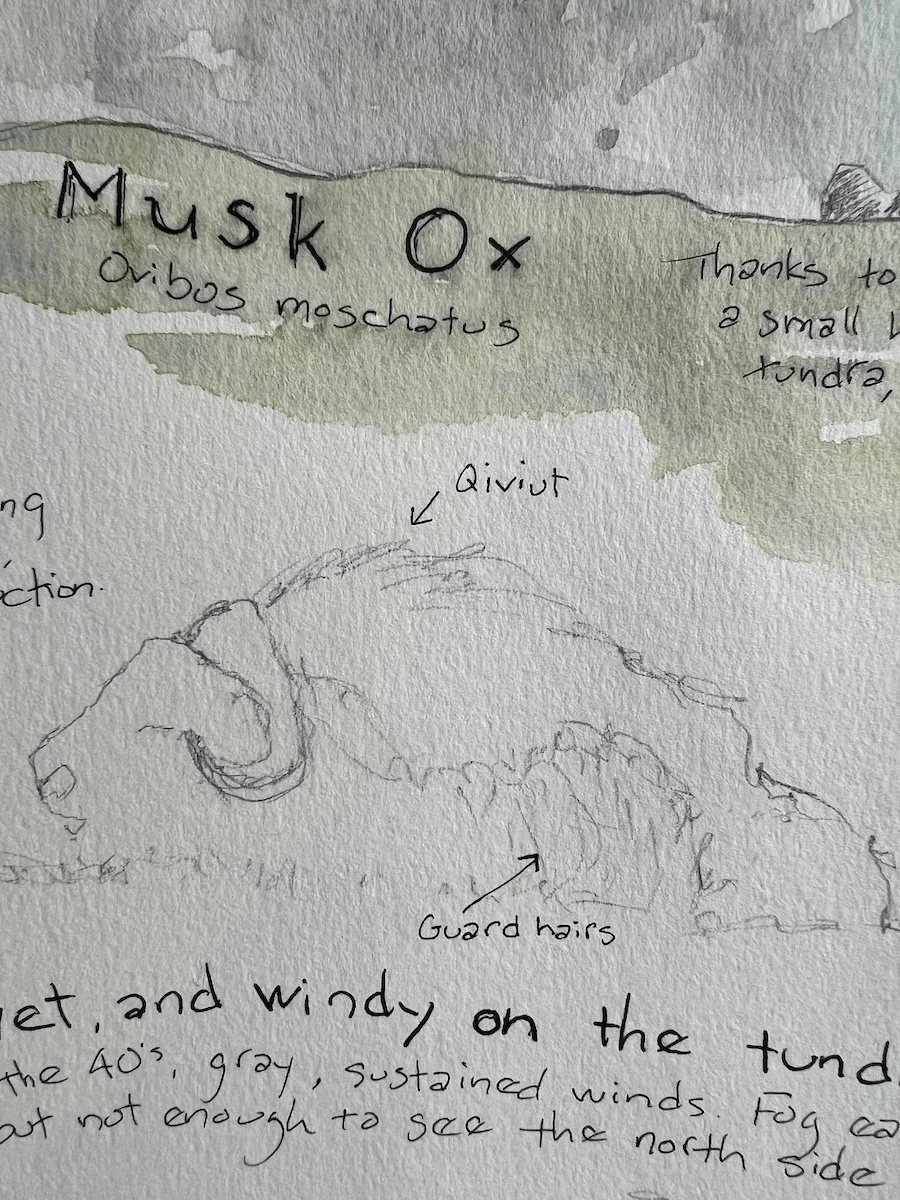 Musk Ox
Ovibos moschatus
Thanks to
a small
tundra,
ng
ction.
Qiviut
Guard hairs
et, and windy on the tund
the 40's, gray, sustained winds. Fog ea
but not enough to see the north side